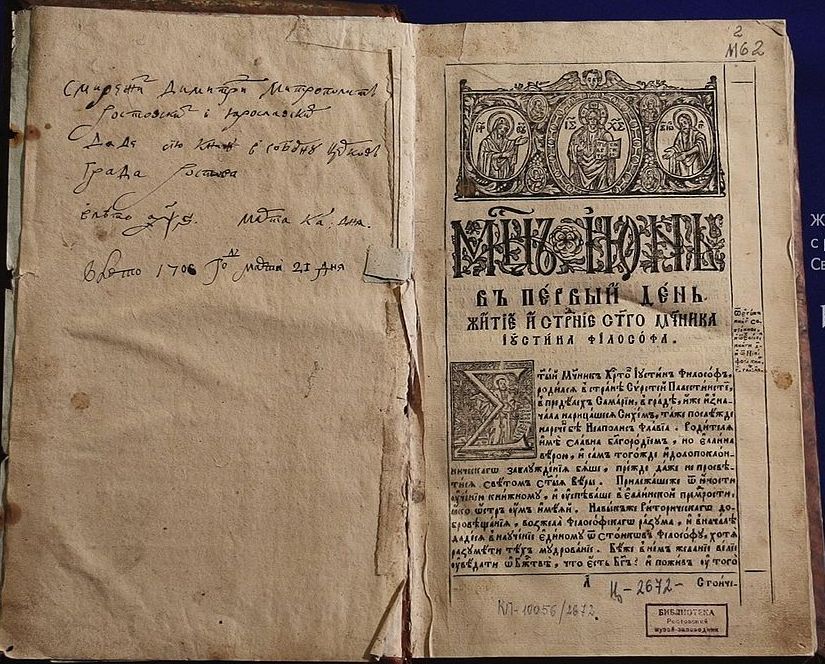 Смирений Димитрий Митрополитъ
Ростовски і Ярославски
Даде сію Книг в соборну Церковь
Града Ростова
марта ка дня.
В лето 1706 го марта 21 дня
2
М62
ІС ХС
МЦЪ ІЮНЬ
ВЪ ПЕРВЫЙ ДЕНЬ.
ЖИТІЕ И СТРНІЕ СТГО МЧНИКА
ІУСТІНА ФІЛОСОФА.
Стый Мчникъ Хртовъ Іустінъ Філософъ,
родился въ странѣ Сүрстей Палестінстѣ,
в предѣлехъ Самаріи, в градѣ, иже изна-
чала нарицашеся Сихемъ, таже послѣжде
наречеся Неаполисъ Флавіа. Родителя
имѣ славна благородіемъ, но еллина
вѣрою, и самъ тогожде идолопоклон-
ническагѡ заблужденія бяше, прежде даже не просвѣ-
тися свѣтомъ стыя вѣры. Прилежашеже ѿ юности
оученію книжному, и оуспѣваше в еллинской премрости,
ꙗкѡ остръ оумъ имѣяй. Навыкъже Риторическагѡ до-
бровѣщанія, возжела філософскагѡ разума, и вначалѣ
дадеся в наученіе единому ѿ Стоиковъ Філософу, хотя
разумѣти тѣхъ мудрованіе. Бѣже в немъ желаніе веліе
оувѣдати ѡ Бжтвѣ, что есть Бгъ? и поживъ оу того
А
Стоиче-
Ц-2672-
КП-10056/2672.
БИБЛИОТЕКА
Ростовский
музей-заповедник
Ж
с р
Св